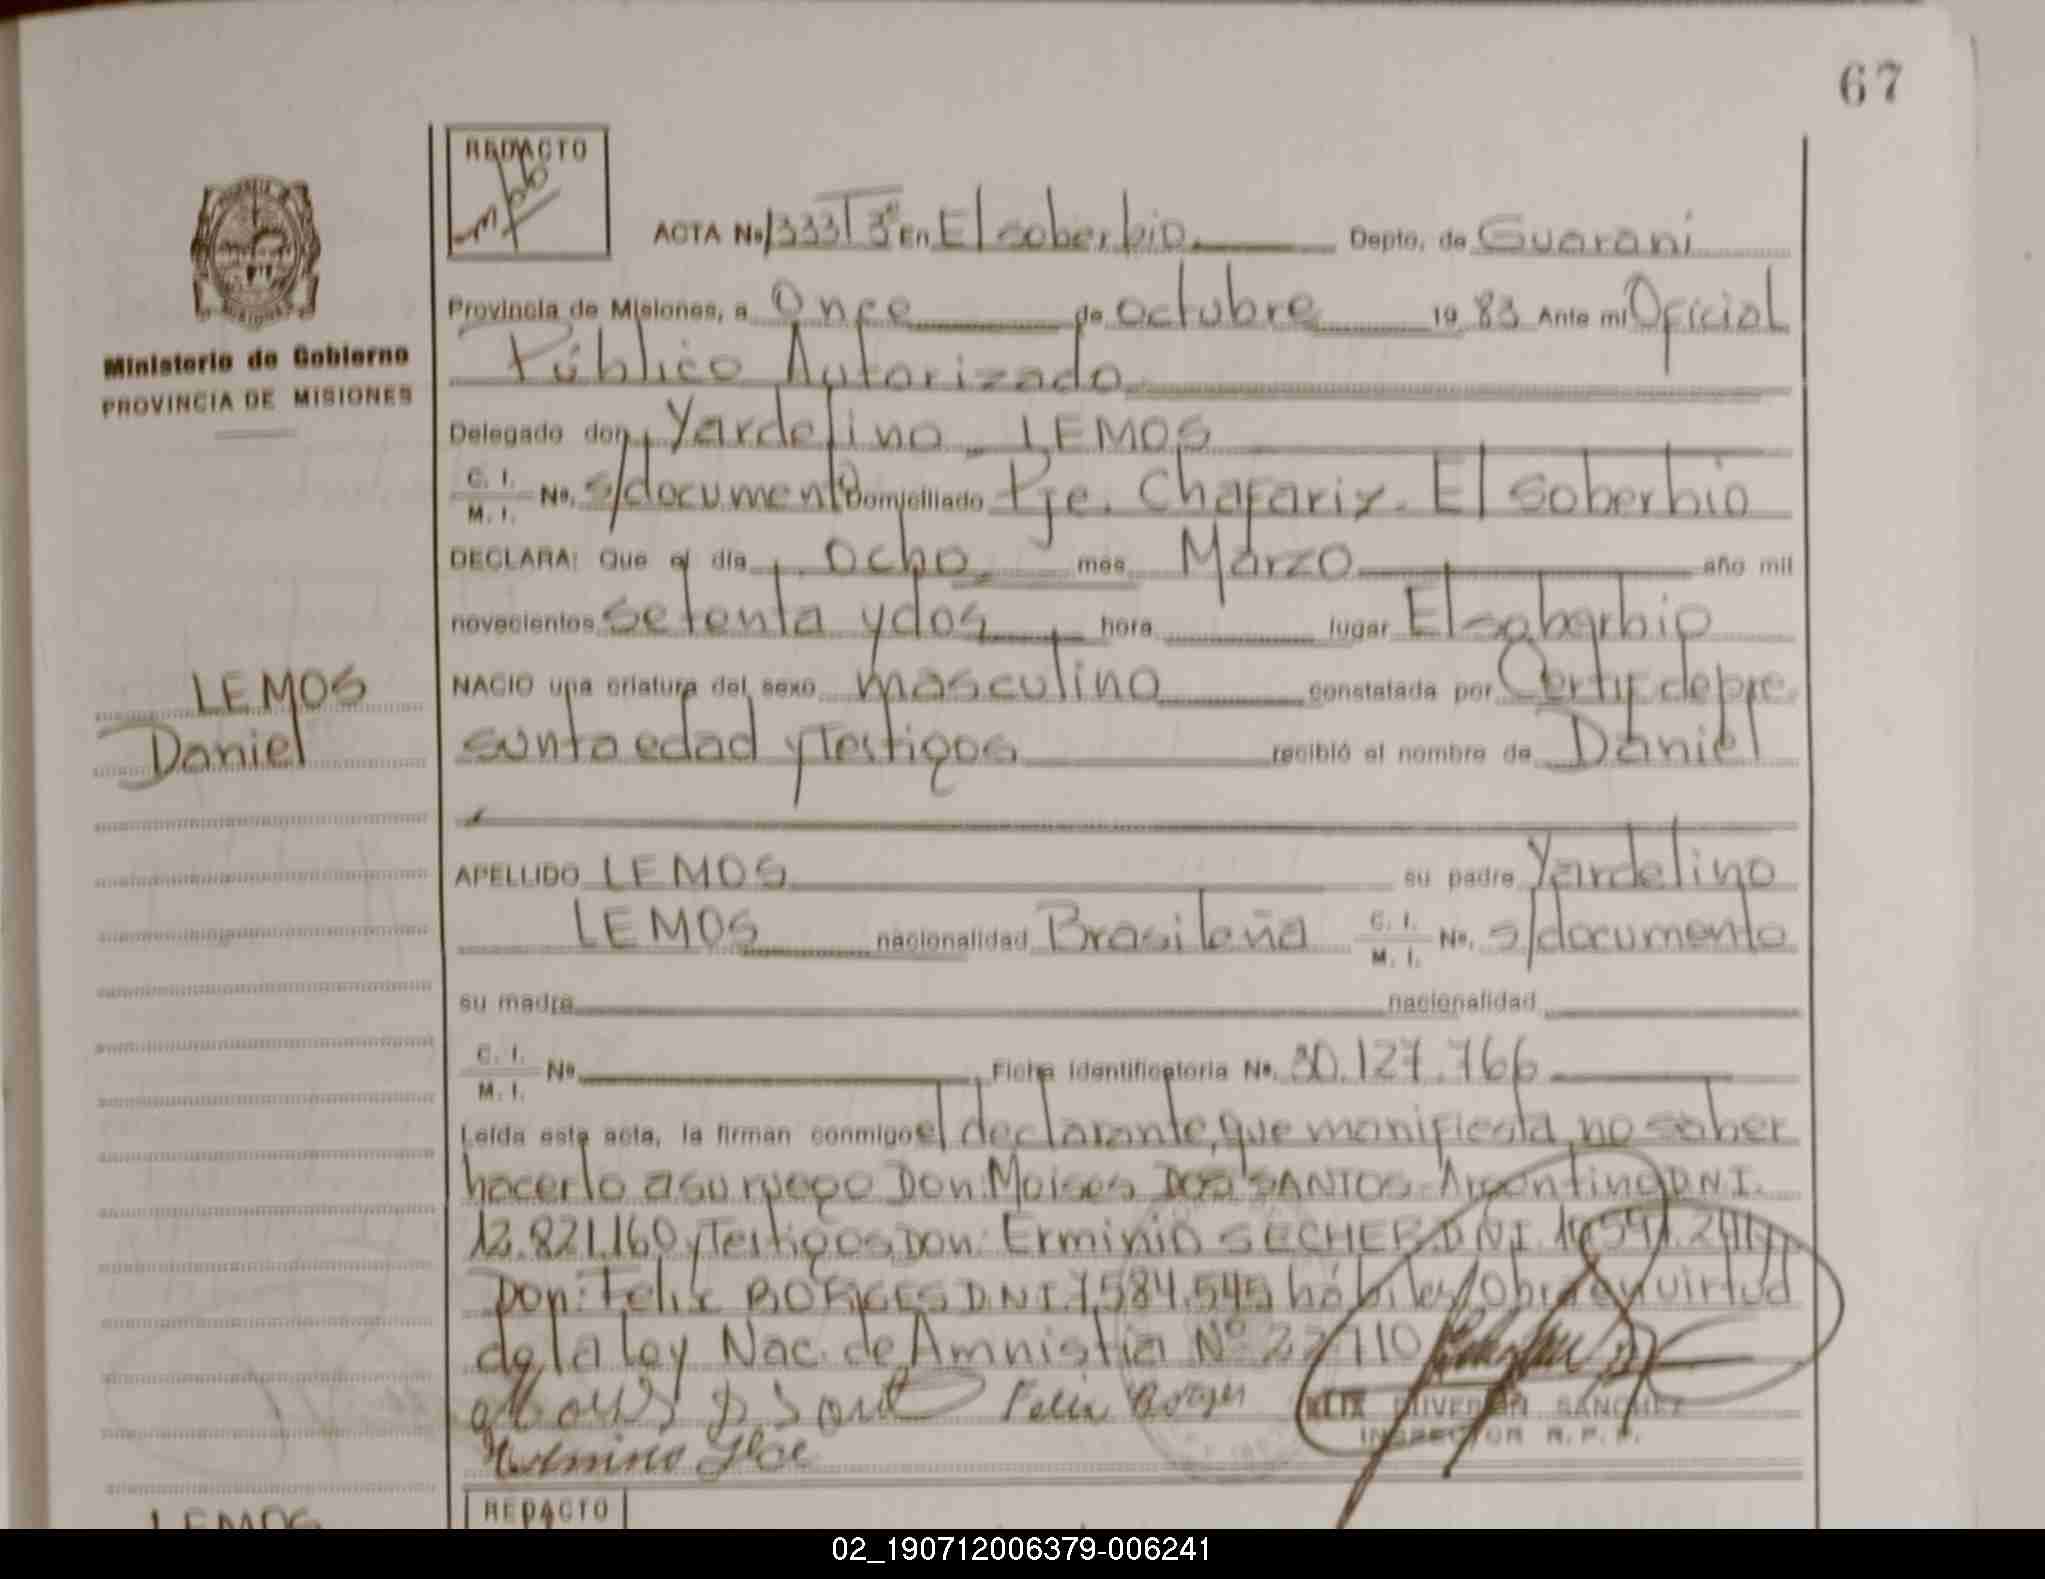 67
REDACTO
ACTA No 1333 T 3º En El soberbio Depto. de Guarani
Provincia de Misiones, a Once de octubre 19 83 Ante mi Oficial
Público Autorizado
Ministerio de Gobierno
PROVINCIA DE MISIONES
Delegado don Yardelino LEMOS
C. I. M. I. No. s/documento Domiciliado Pje. Chafariz. El soberbio
DECLARA: Que el día ocho mes Marzo año mil
novecientos setenta y dos hora lugar El soberbio
LEMOS
Daniel
NACIO una criatura del sexo masculino constatada por Certif de pre
sunta edad y Testigos recibió el nombre de Daniel
APELLIDO LEMOS su padre Yardelino
LEMOS nacionalidad Brasileña C. I. M. I. No. s/documento
su madre nacionalidad
C. I. M. I. No Ficha identificatoria No. 30.127.766
Leída esta acta, la firman conmigo el declarante, que manifiesta no saber
hacerlo a su ruego Don: Moises DOS SANTOS Argentino D.N.I.
12.821.160 y Testigos Don: Erminio SECHER D.N.I.
Don: Felix BORGES D.N.I. 7.584.545 hábiles/Obra en virtud
de la ley Nac. de Amnistia Nº 22110
Felix Borges
SANCHEZ
INSPECTOR R. P. P.
REDACTO
LEMOS
02_190712006379-006241